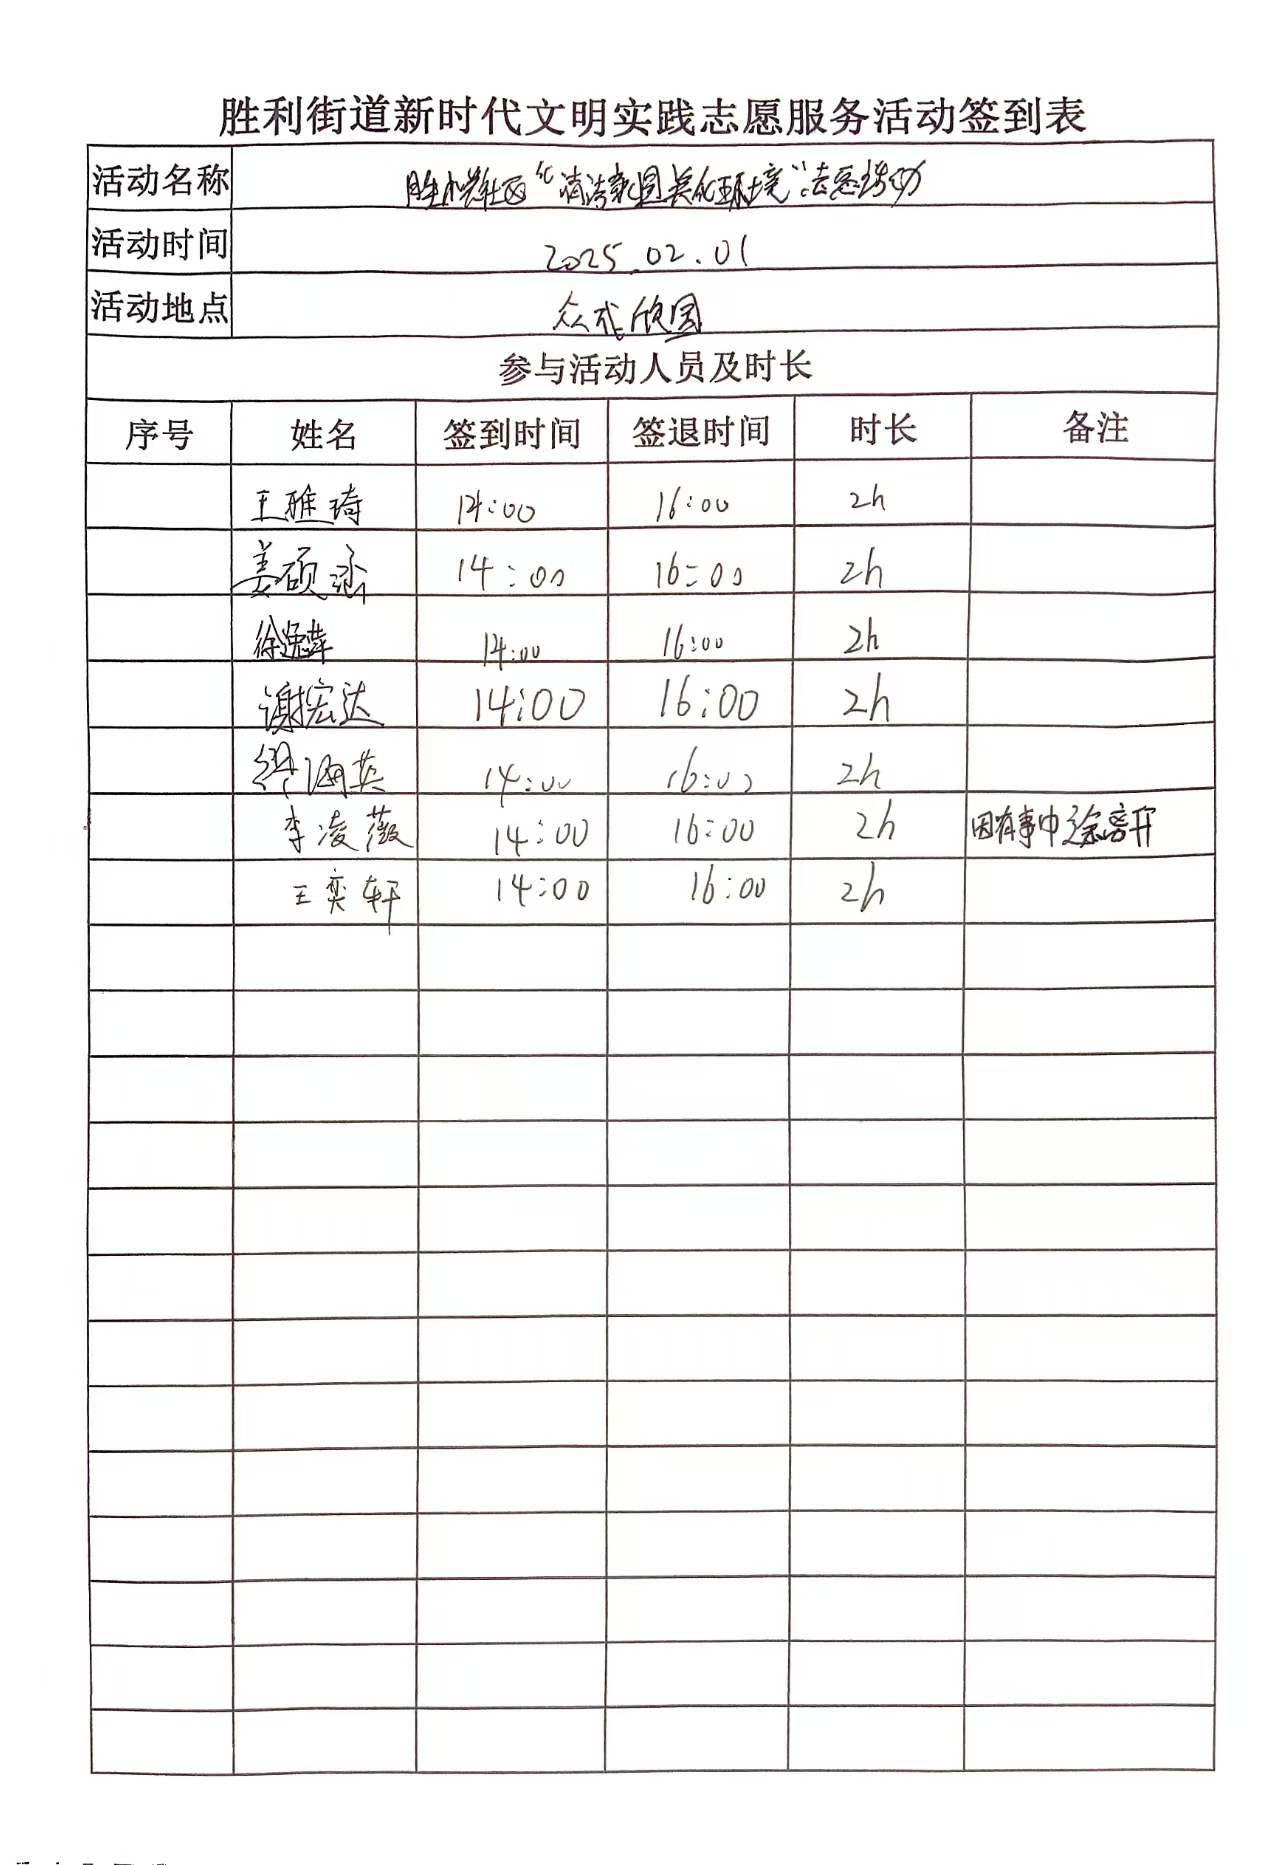 胜利街道新时代文明实践志愿服务活动签到表
活动名称 社区“清洁家园美化环境”志愿活动
活动时间 2025.02.01
活动地点 众成欣园
参与活动人员及时长
序号 姓名 签到时间 签退时间 时长 备注
王雅琦 14:00 16:00 2h
姜硕涵 14:00 16:00 2h
徐 14:00 16:00 2h
谢宏达 14:00 16:00 2h
海英 14:00 16:00 2h
李凌薇 14:00 16:00 2h 因有事中途离开
王奕轩 14:00 16:00 2h